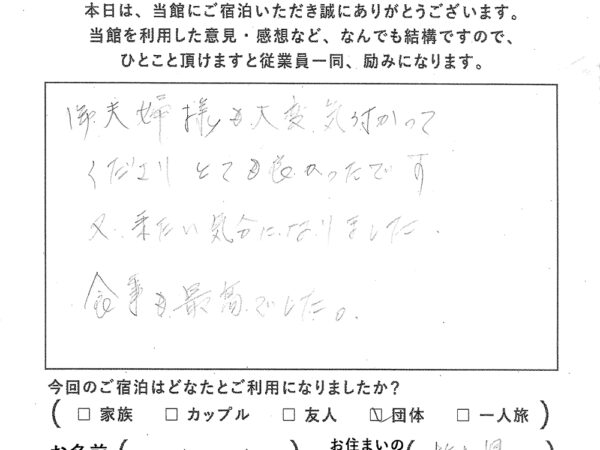 本日は、当館にご宿泊いただき誠にありがとうございます。
当館を利用した意見・感想など、なんでも結構ですので、
ひとこと頂けますと従業員一同、励みになります。
御夫婦様も大変気づかって
くださり とても良かったです
又、来たい気分になりました。
食事も最高でした。
今回のご宿泊はどなたとご利用になりましたか?
( □ 家族 □ カップル □ 友人 ☑ 団体 □ 一人旅 )
お名前 (
) お住まいの (